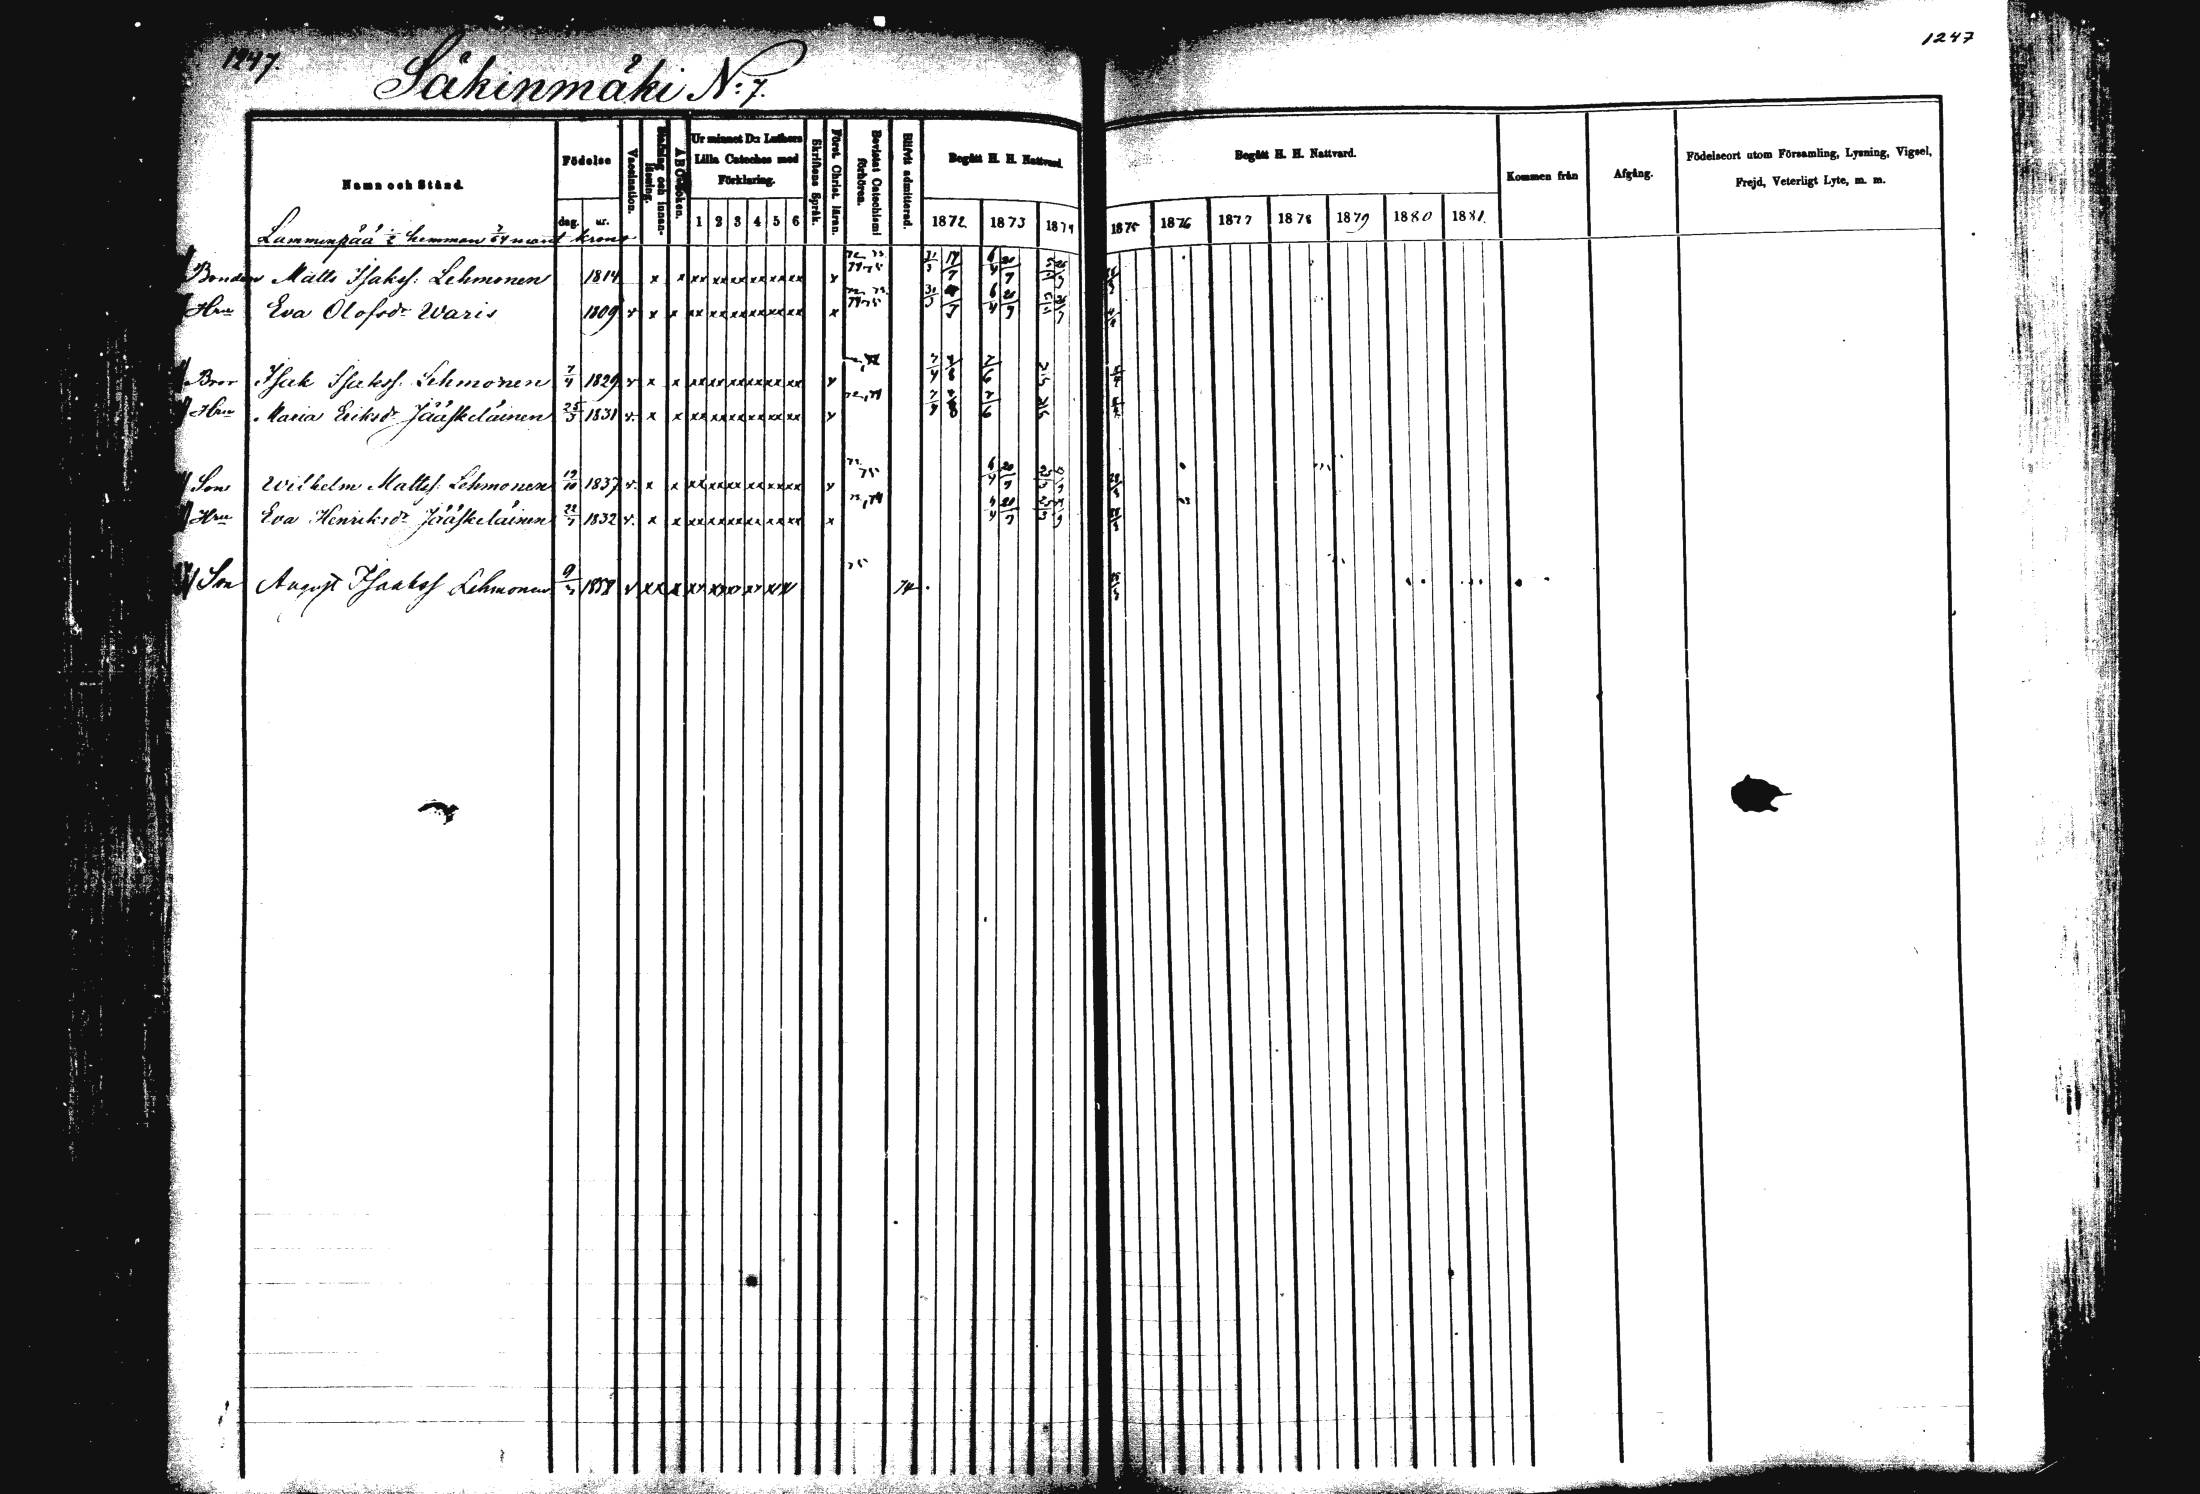 1247.
1247
Säkinmäki N:o 7.
Namn och Stånd.
Födelse
dag. år.
Vaccination.
Stafning och innan-läsning.
A B C boken.
Ur minnet D:r Luthers Lilla Cateches med Förklaring.
1 2 3 4 5 6
Skriftens Språk.
Först. Christ. läran.
Bevistat Catechismi förhören.
Blifvit admitterad.
Begått H. H. Nattvard.
1872 1873 1874
Begått H. H. Nattvard.
1875 1876 1877 1878 1879 1880 1881.
Kommen från
Afgång.
Födelseort utom Församling, Lysning, Vigsel, Frejd, Veterligt Lyte, m. m.
Lammenpää 1/2 hemman 7/64 mant krono
Bonden Matts Isakss: Lehmonen 1814 x x xx xx xx xx xx xx
Hru Eva Olofsdr Waris 1809 v x x xx xx xx xx xx xx x
Bror Isak Isakss. Lehmonen 7/4 1829 v x x xx xx xx xx xx xx
Hru Maria Eriksdr Jääskeläinen 25/3 1831 v. x x xx xx xx xx xx xx
Son Wilhelm Mattss. Lehmonen 19/10 1837 v. x x xx xx xx xx xx xx
Hru Eva Henriksdr Jääskeläinen 22/7 1832 v. x x xx xx xx xx xx xx x
Son August Isakss Lehmonen 1858 v xx x xx xx xx xx xx xx 75 74